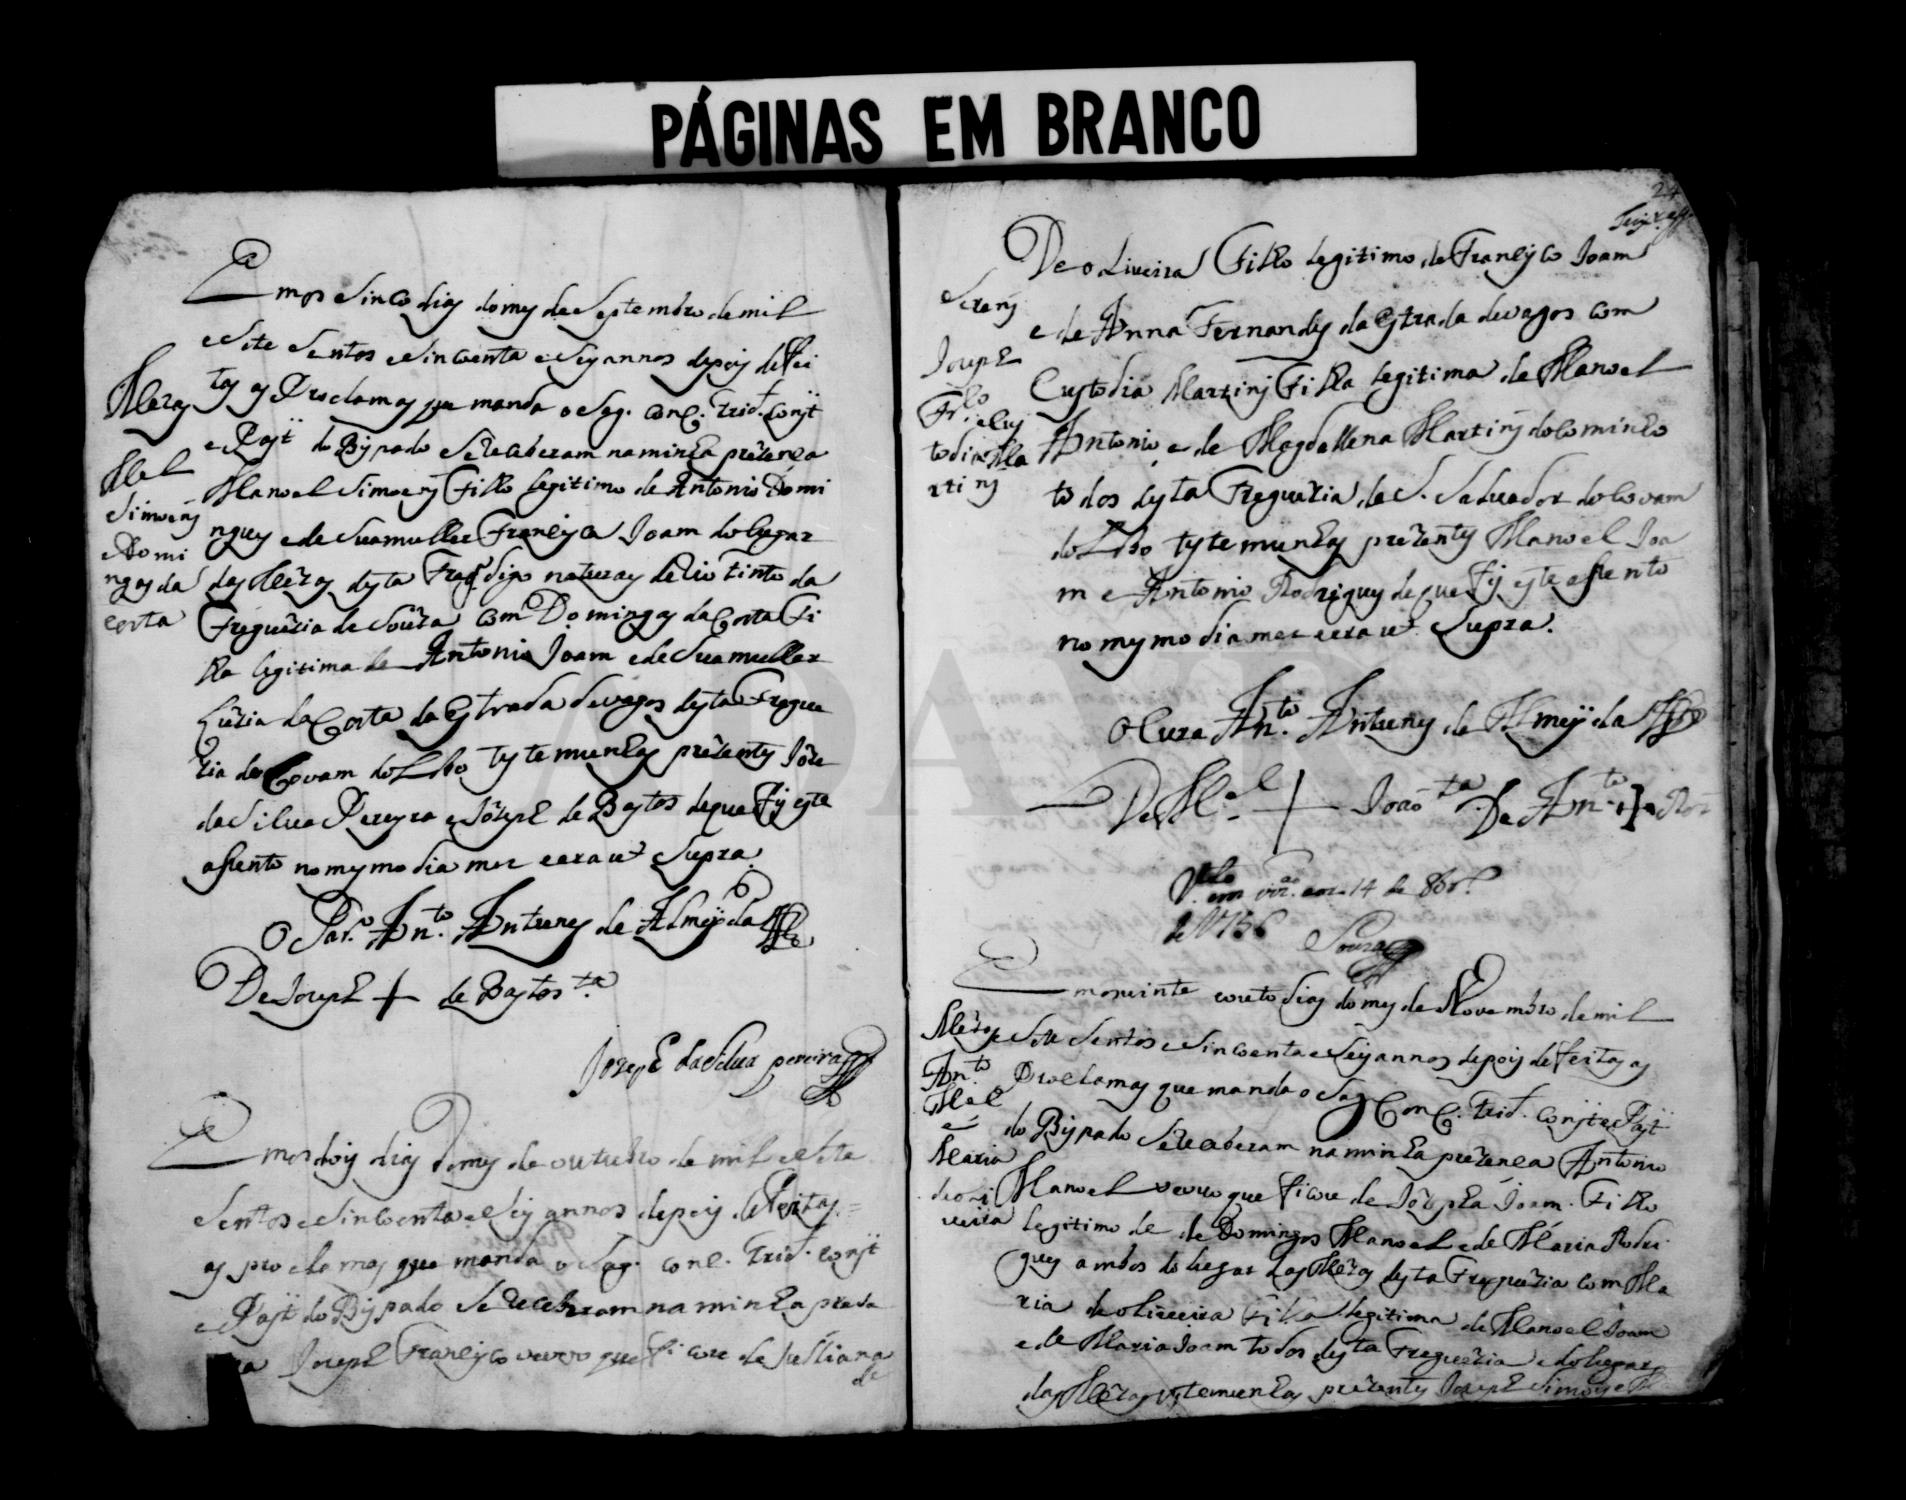 PÁGINAS EM BRANCO
Em os sinco dias do mes de Septembro de mil
e Sete Sentos e Sincoenta e Seis annos depois de Fei
tas as Proclamas que manda o Sag. Conc. Trid. Const
e Past do Bispado Se Receberam na minha prezença
Manoel Simoens Filho legitimo de Antonio Domi
ngues e de Sua mulher Francisca Joam do lugar
das Mezas desta Freg. digo naturas de Rio tinto da
Freguezia de Souza com Domingas da Costa Fi
lha legitima de Antonio Joam e de Sua mulher
Luzia da Costa da Estrada de vagos desta Fregue
zia de Covam do Lobo testemunhas prezentes Joze
da Silva Pereyra e Jozeph de Bastos de que Fis este
assento no mesmo dia mes e era ut Supra.
O Par.º Ant.º Antunes de Almeyda
De Joseph + de Bastos t.ª
Jozeph da Silva pereira
Mezas
Mel
Simoens
e Domi
ngas da
Costa
Em os dois dias do mes de outubro de mil e Sete
Sentos e Sincoenta e Seis annos depois de Feitas
as proclamas que manda o Sag. Conc. Trid. Const
e Past do Bispado Se Receberam na minha preze
nça Joseph Francisco veuvo que Ficou de Julliana
de
24
De oliveira Filho legitimo de Francisco Joam
e de Anna Fernandes da Estrada de vagos com
Custodia Martins Filha legitima de Manoel
Antonio e de Magdallena Martins do Cominho
todos desta Freguezia de S. Salvador do Covam
do Lobo testemunhas prezentes Manoel Joa
m e Antonio Rodrigues de que Fis este assento
no mesmo dia mes e era ut Supra.
O Cura Ant.º Antunes de Almeyda
De M.el + Joaõ t.ª De Ant.º + Roz
Joseph
Fr.co e Cus
todia Ma
rtins
V.to em viz.am aos 14 de 8br.º
de 1756
Souza
Em os vinte e outo dias do mes de Novembro de mil
e Sete Sentos e Sincoenta e Seis annos depois de Feitas as
Proclamas que manda o Sag Conc. Trid. Const e Past
do Bispado Se Receberam na minha prezença Antonio
Manoel veuvo que Ficou de Jozepha Joam. Filho
legitimo de de Domingos Manoel e de Maria Rodri
gues ambos do lugar das Mezas desta Freguezia com Ma
ria de oliveira Filha legitima de Manoel Joam
e de Maria Joam todos desta Freguezia e do lugar
das Mezas testemunhas prezentes Jozeph Simois e
Mezas
Ant.º
Mel
e
Maria
de oli
veira